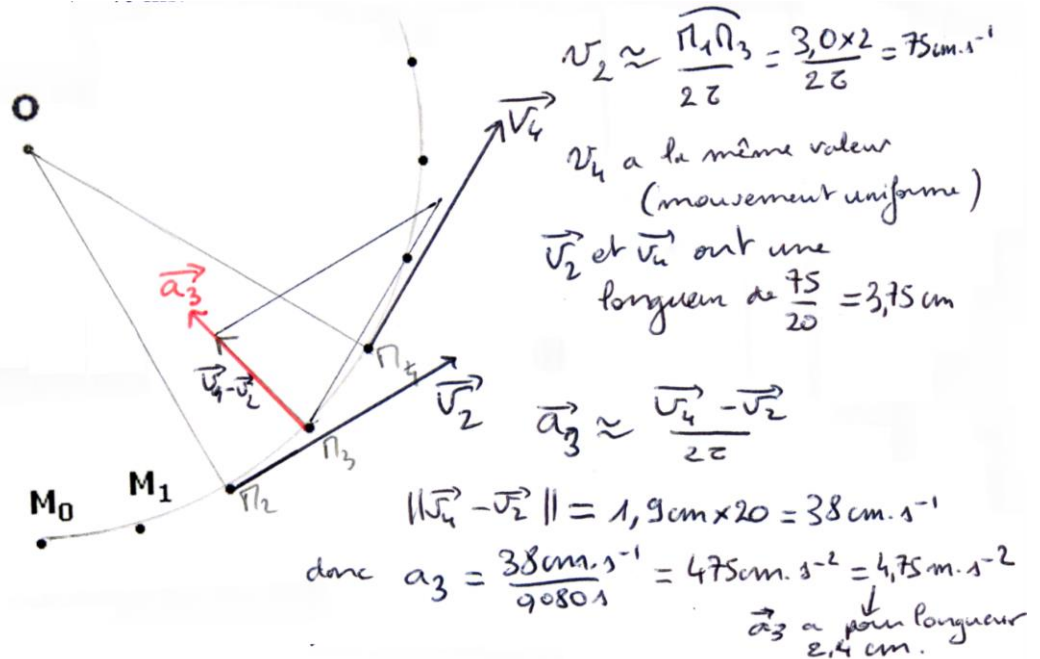 O
M₀
M₁
Π₂
Π₃
Π₄
v₂→
v₄→
a₃→
v₄→ - v₂→
v₂ ≈ Π₁Π₃/2τ = 3,0×2/2τ = 75cm.s⁻¹
v₄ a la même valeur
(mouvement uniforme)
v₂→ et v₄→ ont une
longueur de 75/20 = 3,75 cm
a₃→ ≈ (v₄→ - v₂→)/2τ
||v₄→ - v₂→|| = 1,9cm × 20 = 38cm.s⁻¹
donc a₃ = 38cm.s⁻¹/0,080s = 475cm.s⁻² = 4,75m.s⁻²
a₃→ a pour longueur
2,4 cm.